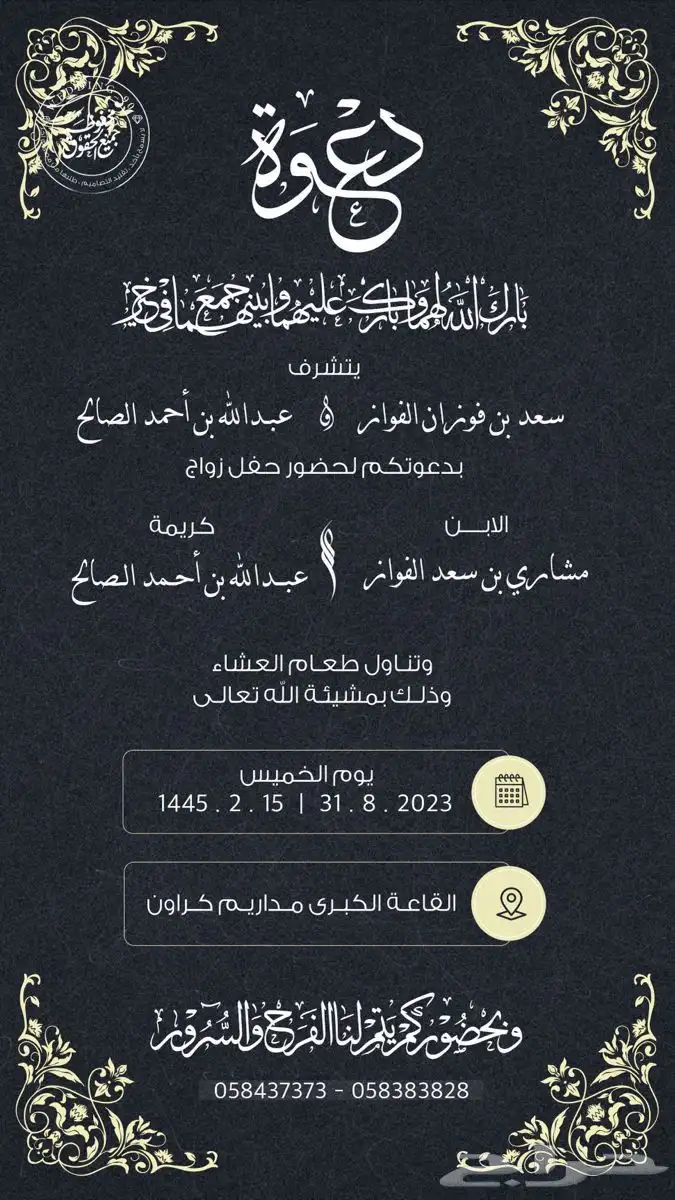 محفوظة
جميع الحقوق
دعوة
بارك الله لهما وبارك عليهما وجمع بينهما في خير
يتشرف
سعد بن فوزان الفواز و عبدالله بن أحمد الصالح
بدعوتكم لحضور حفل زواج
الابـــن كريمة
مشاري بن سعد الفواز عبدالله بن أحمد الصالح
وتناول طعام العشاء
وذلك بمشيئة الله تعالى
يوم الخميس
1445 . 2 . 15 | 31 . 8 . 2023
القاعة الكبرى مداريم كراون
وبحضوركم يتم لنا الفرح والسرور
058437373 - 058383828
حراج